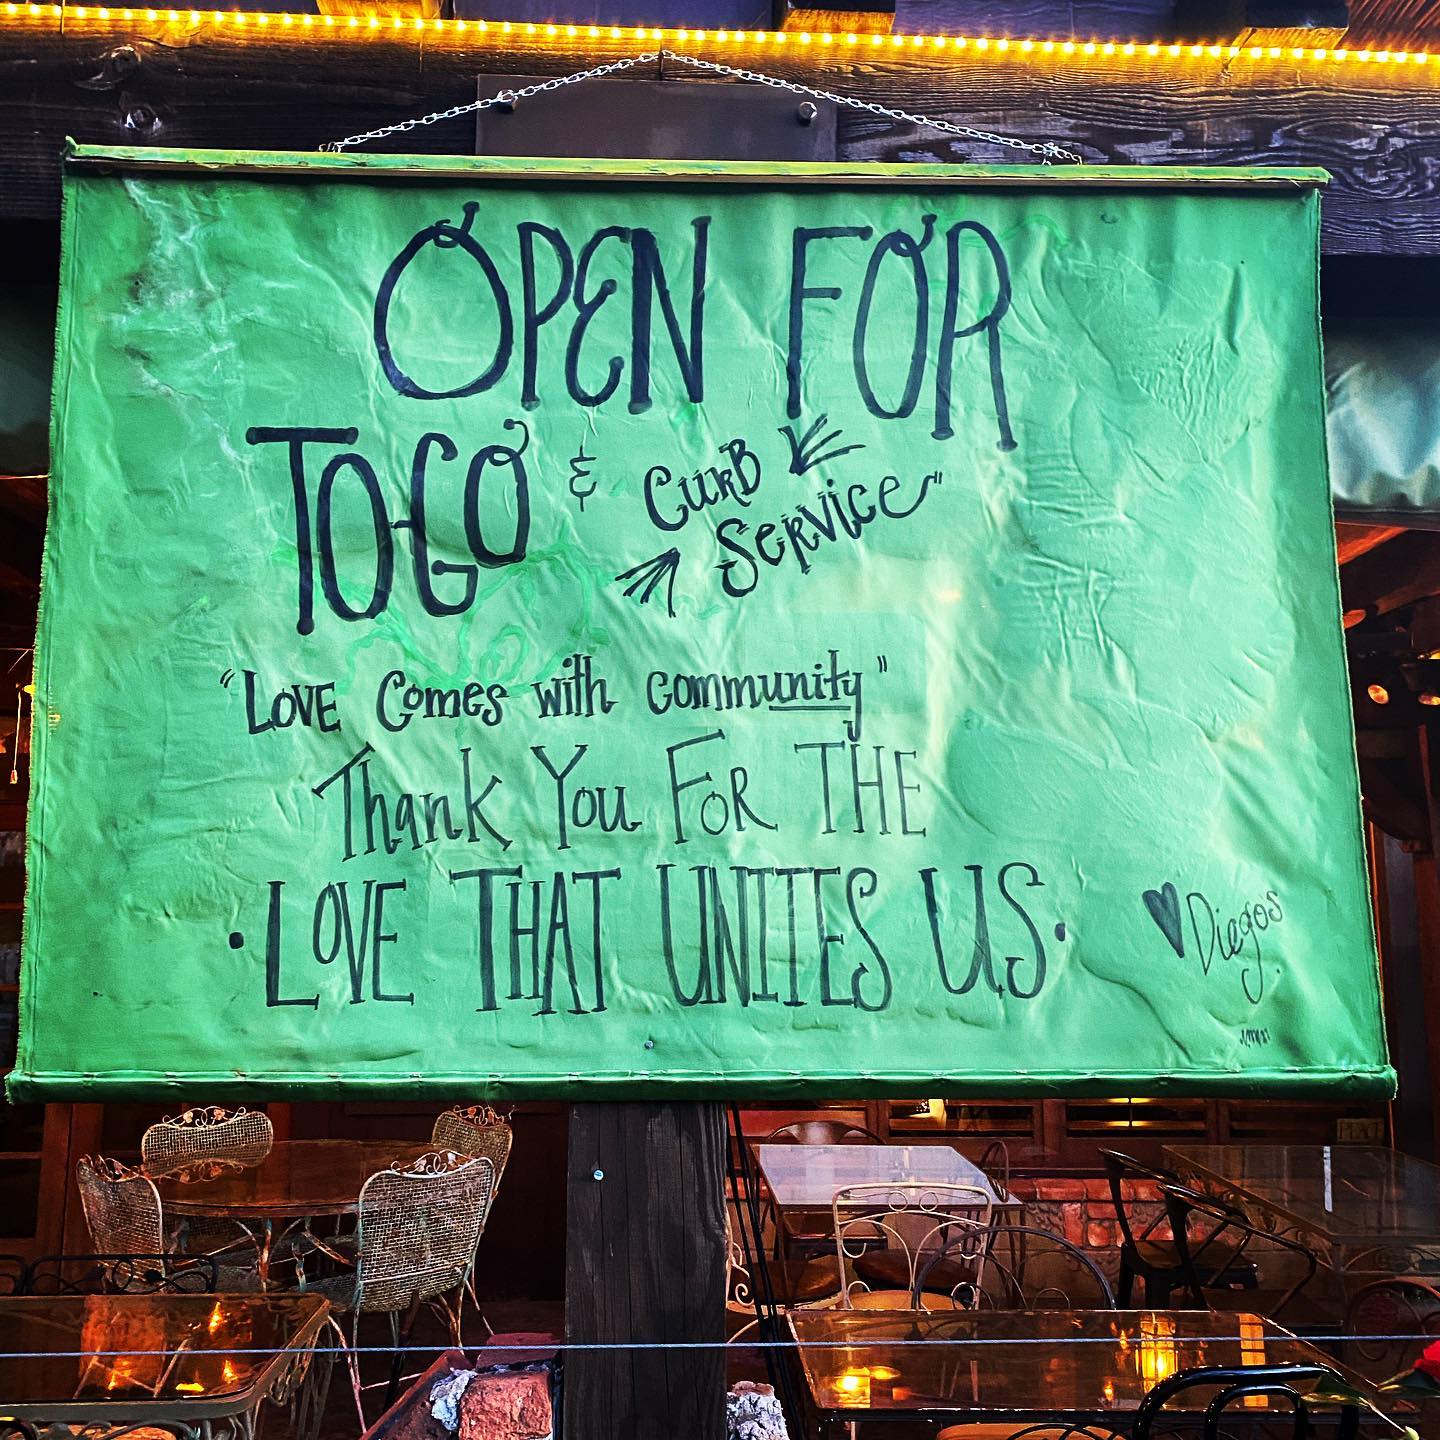 OPEN FOR
TO-GO & CURB
SERVICE"
"LOVE Comes with community"
Thank You FOR THE
• LOVE THAT UNITES US •
♥ Diegos